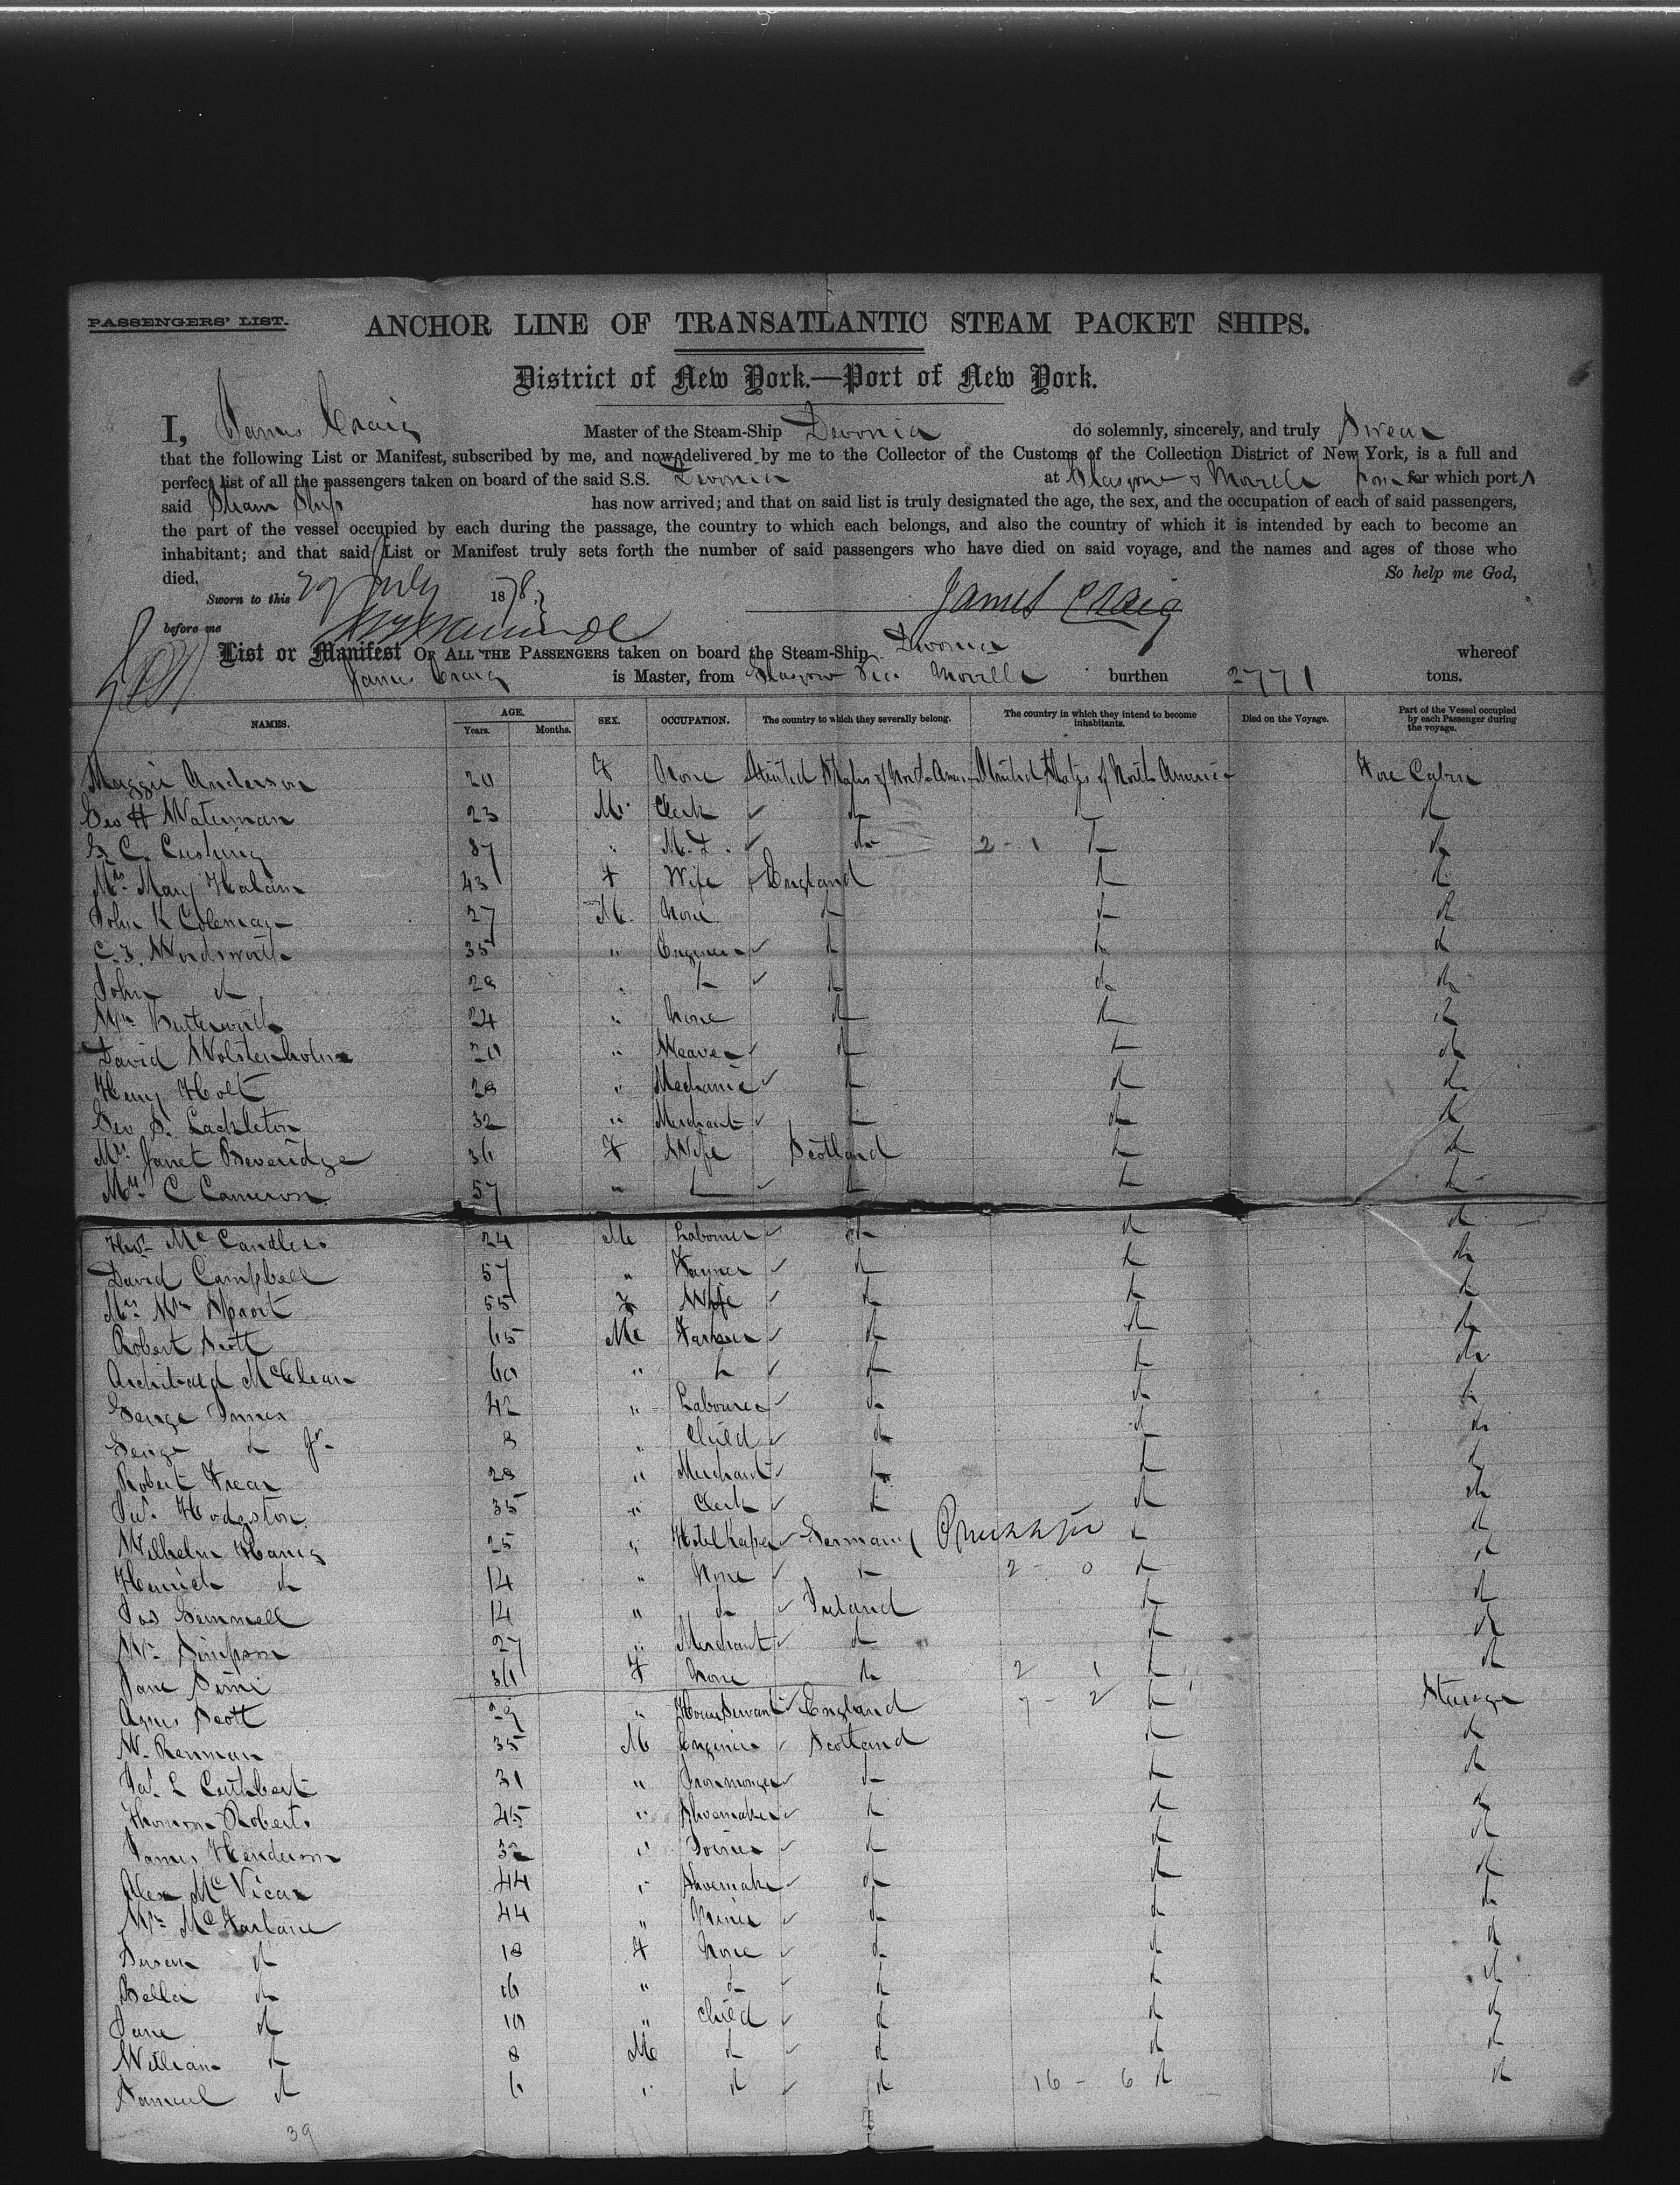 PASSENGERS' LIST.
ANCHOR LINE OF TRANSATLANTIC STEAM PACKET SHIPS.
District of New York.—Port of New York.
I, James Craig Master of the Steam-Ship Devonia do solemnly, sincerely, and truly Swear
that the following List or Manifest, subscribed by me, and now delivered by me to the Collector of the Customs of the Collection District of New York, is a full and
perfect list of all the passengers taken on board of the said S.S. Devonia at Glasgow & Moville from which ports
said Steam Ship has now arrived; and that on said list is truly designated the age, the sex, and the occupation of each of said passengers,
the part of the vessel occupied by each during the passage, the country to which each belongs, and also the country of which it is intended by each to become an
inhabitant; and that said List or Manifest truly sets forth the number of said passengers who have died on said voyage, and the names and ages of those who
died. So help me God,
Sworn to this 29 July 1878
James Craig
before me
List or Manifest OF ALL THE PASSENGERS taken on board the Steam-Ship Devonia whereof
James Craig is Master, from Glasgow Via Moville burthen 2771 tons.
NAMES. AGE. Years. Months. SEX. OCCUPATION. The country to which they severally belong. The country in which they intend to become inhabitants. Died on the Voyage. Part of the Vessel occupied by each Passenger during the voyage.
Maggie Anderson 20 F None United States of North America United States of North America Fore Cabin
Geo H Waterman 23 M Clerk do do do
C. Cushing 37 " M.D. do 2 - 1 do do
Mrs Mary 43 F Wife England do do
John K Coleman 27 M None do do do
C. J. Wordsworth 35 " Engineer do do do
John do 28 " do do do do
Wm Butterworth 24 " None do do do
David Wolstenholme 20 " Weaver do do do
Henry Holt 28 " Mechanic do do do
Geo S. Lackleton 32 " Merchant do do do
Mrs Janet Beveridge 36 F Wife Scotland do do
Mrs C Cameron 57 " do do do do
Thos McCandless 24 M Labourer do do do
David Campbell 57 " Farmer do do do
Mrs Wm 55 F Wife do do do
Robert Scott 65 M Farmer do do do
Archibald McLean 60 " do do do do
George Innes 42 " Labourer do do do
George do Jr. 8 " Child do do do
Robert Frear 28 " Merchant do do do
Jas. Hodgston 35 " Clerk do do do
Wilhelm Hanig 25 " Hotel Keeper Germany Prussia do do
Heinrich do 14 " None do 2 - 0 do do
Jas Gemmell 14 " do Ireland do do
Wm Simpson 27 " Merchant do do do
Jane 36 F None do 2 1 do do
Agnes Scott 29 " House Servant England 7 - 2 do Steerage
W. Renman 35 M Engineer Scotland do do
Jas. L Cuthbert 31 " Ironmonger do do do
Thomson Roberts 45 " Shoemaker do do do
James Henderson 32 " Joiner do do do
Alex McVicar 44 " Shoemaker do do do
Wm McFarlane 44 " Miner do do do
Susan do 18 F None do do do
Bella do 16 " do do do do
Jane do 10 " Child do do do
William do 8 M do do do do
Samuel do 6 " do do 16 - 6 do do
39